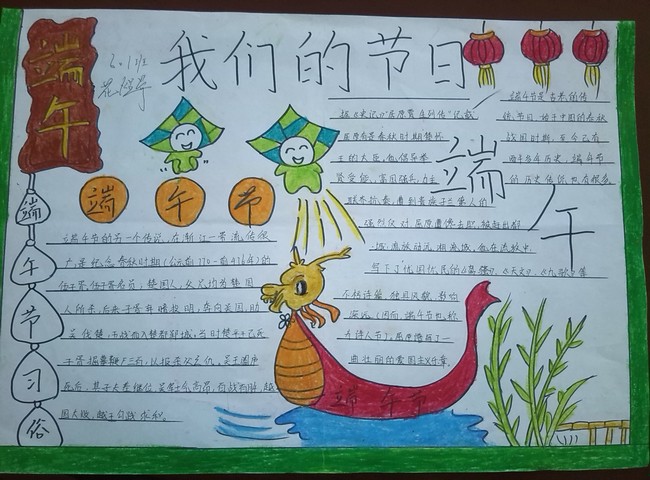 我们的节日
端午
端午节
端午节习俗
端午
端午节是古老的传
统节日,始于中国的春秋
战国时期,至今已有
的历史
据《史记》"屈原贾生列传"记载
屈原,是春秋时期楚怀
王的大臣。他倡导举
贤授能,富国强兵,力主
联齐抗秦,遭到贵族子兰等人的
强烈反对,屈原遭馋去职,被赶出都
城,流放
写下了忧国忧民的《离骚》、《天问》、《九歌》等
不朽诗篇,独具风貌,影响
深远(因而,端午节也称
为诗人节)。
端午节的另一个传说,在
广,是纪念春秋时期(公元前770--前476年)的
伍子胥。伍子胥名员,楚国人,父兄均为楚王
人所杀,后来子胥弃暗投明,奔向吴国,助
吴伐楚,五战而入楚都郢城。当时楚平王已死
子胥掘墓鞭尸三百,以报杀父之仇。吴王阖庐
死后,其子夫差继位,吴军士气高昂,百战百胜,越
国大败,越王勾践求和。
端午节